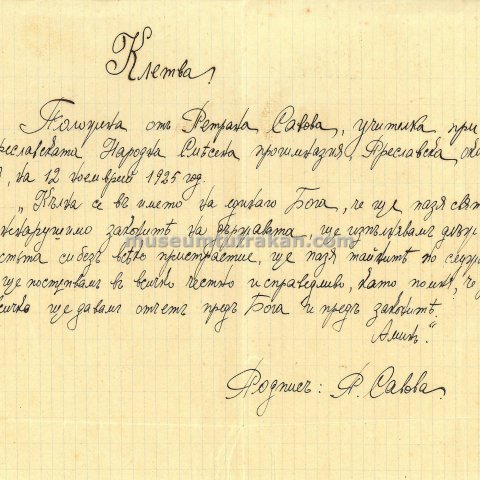 Клетва.
Положена отъ Петрана Савова, учителка при
реславската Народна Смѣсена прогимназия, Преславска око
, на 12 ноемврий 1925 год.
„Кълна се въ името на единаго Бога, че ще пазя свят
ненарушимо законитѣ на държавата ще изпълнявамъ длъж
museumtutrakan.com
стьта си безъ всѣко пристрастие, ще пазя тайнитѣ по служ
ще постѫпвамъ въ всичко честно и справедливо, като помня, че
сичко ще давамъ отчетъ предъ Бога и предъ законитѣ.
Аминь."
Подписъ: П. Савова.